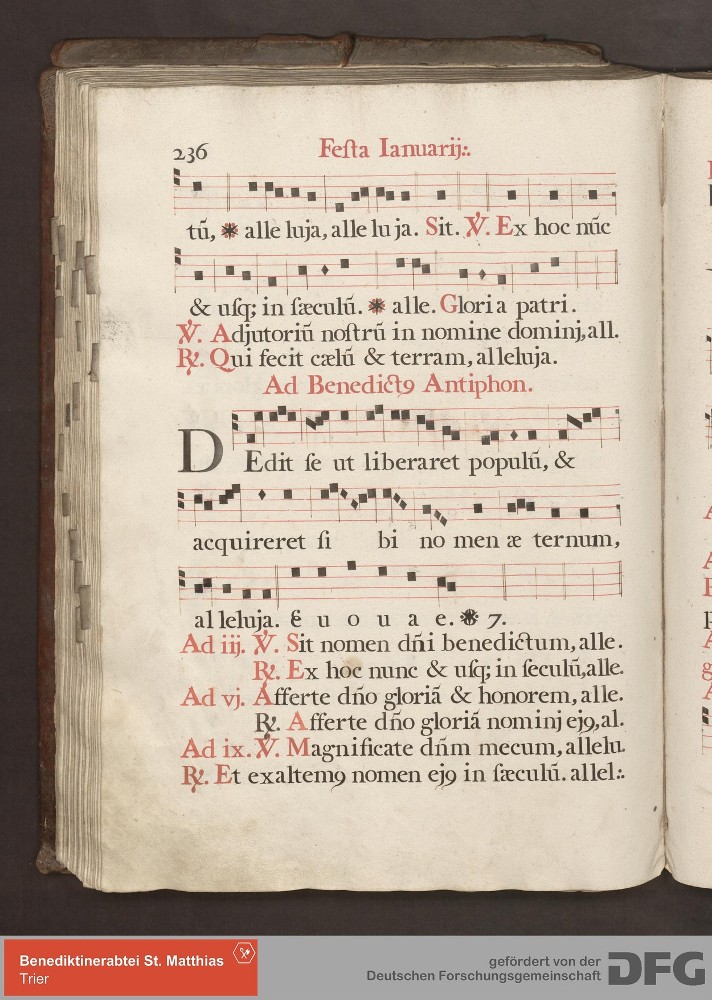 236 Feſta Ianuarij:.
tũ, ✱ alle luja, alle lu ja. Sit. ℣. Ex hoc nũc
& uſq; in ſæculũ. ✱ alle. Gloria patri.
℣. Adjutoriũ noſtrũ in nomine dominj, all.
℟. Qui fecit cælũ & terram, alleluja.
Ad Benedictꝰ Antiphon.
DEdit ſe ut liberaret populũ, &
acquireret ſi bi no men æ ternum,
al leluja. E u o u a e. ✱ 7.
Ad iij. ℣. Sit nomen dñi benedictum, alle.
℟. Ex hoc nunc & uſq; in ſeculũ, alle.
Ad vj. Afferte dño gloriã & honorem, alle.
℟. Afferte dño gloriã nominj ejꝰ, al.
Ad ix. ℣. Magnificate dñm mecum, allelu.
℟. Et exaltemꝰ nomen ejꝰ in ſæculũ. allel:.
Benediktinerabtei St. Matthias
Trier
gefördert von der
Deutschen Forschungsgemeinschaft
DFG